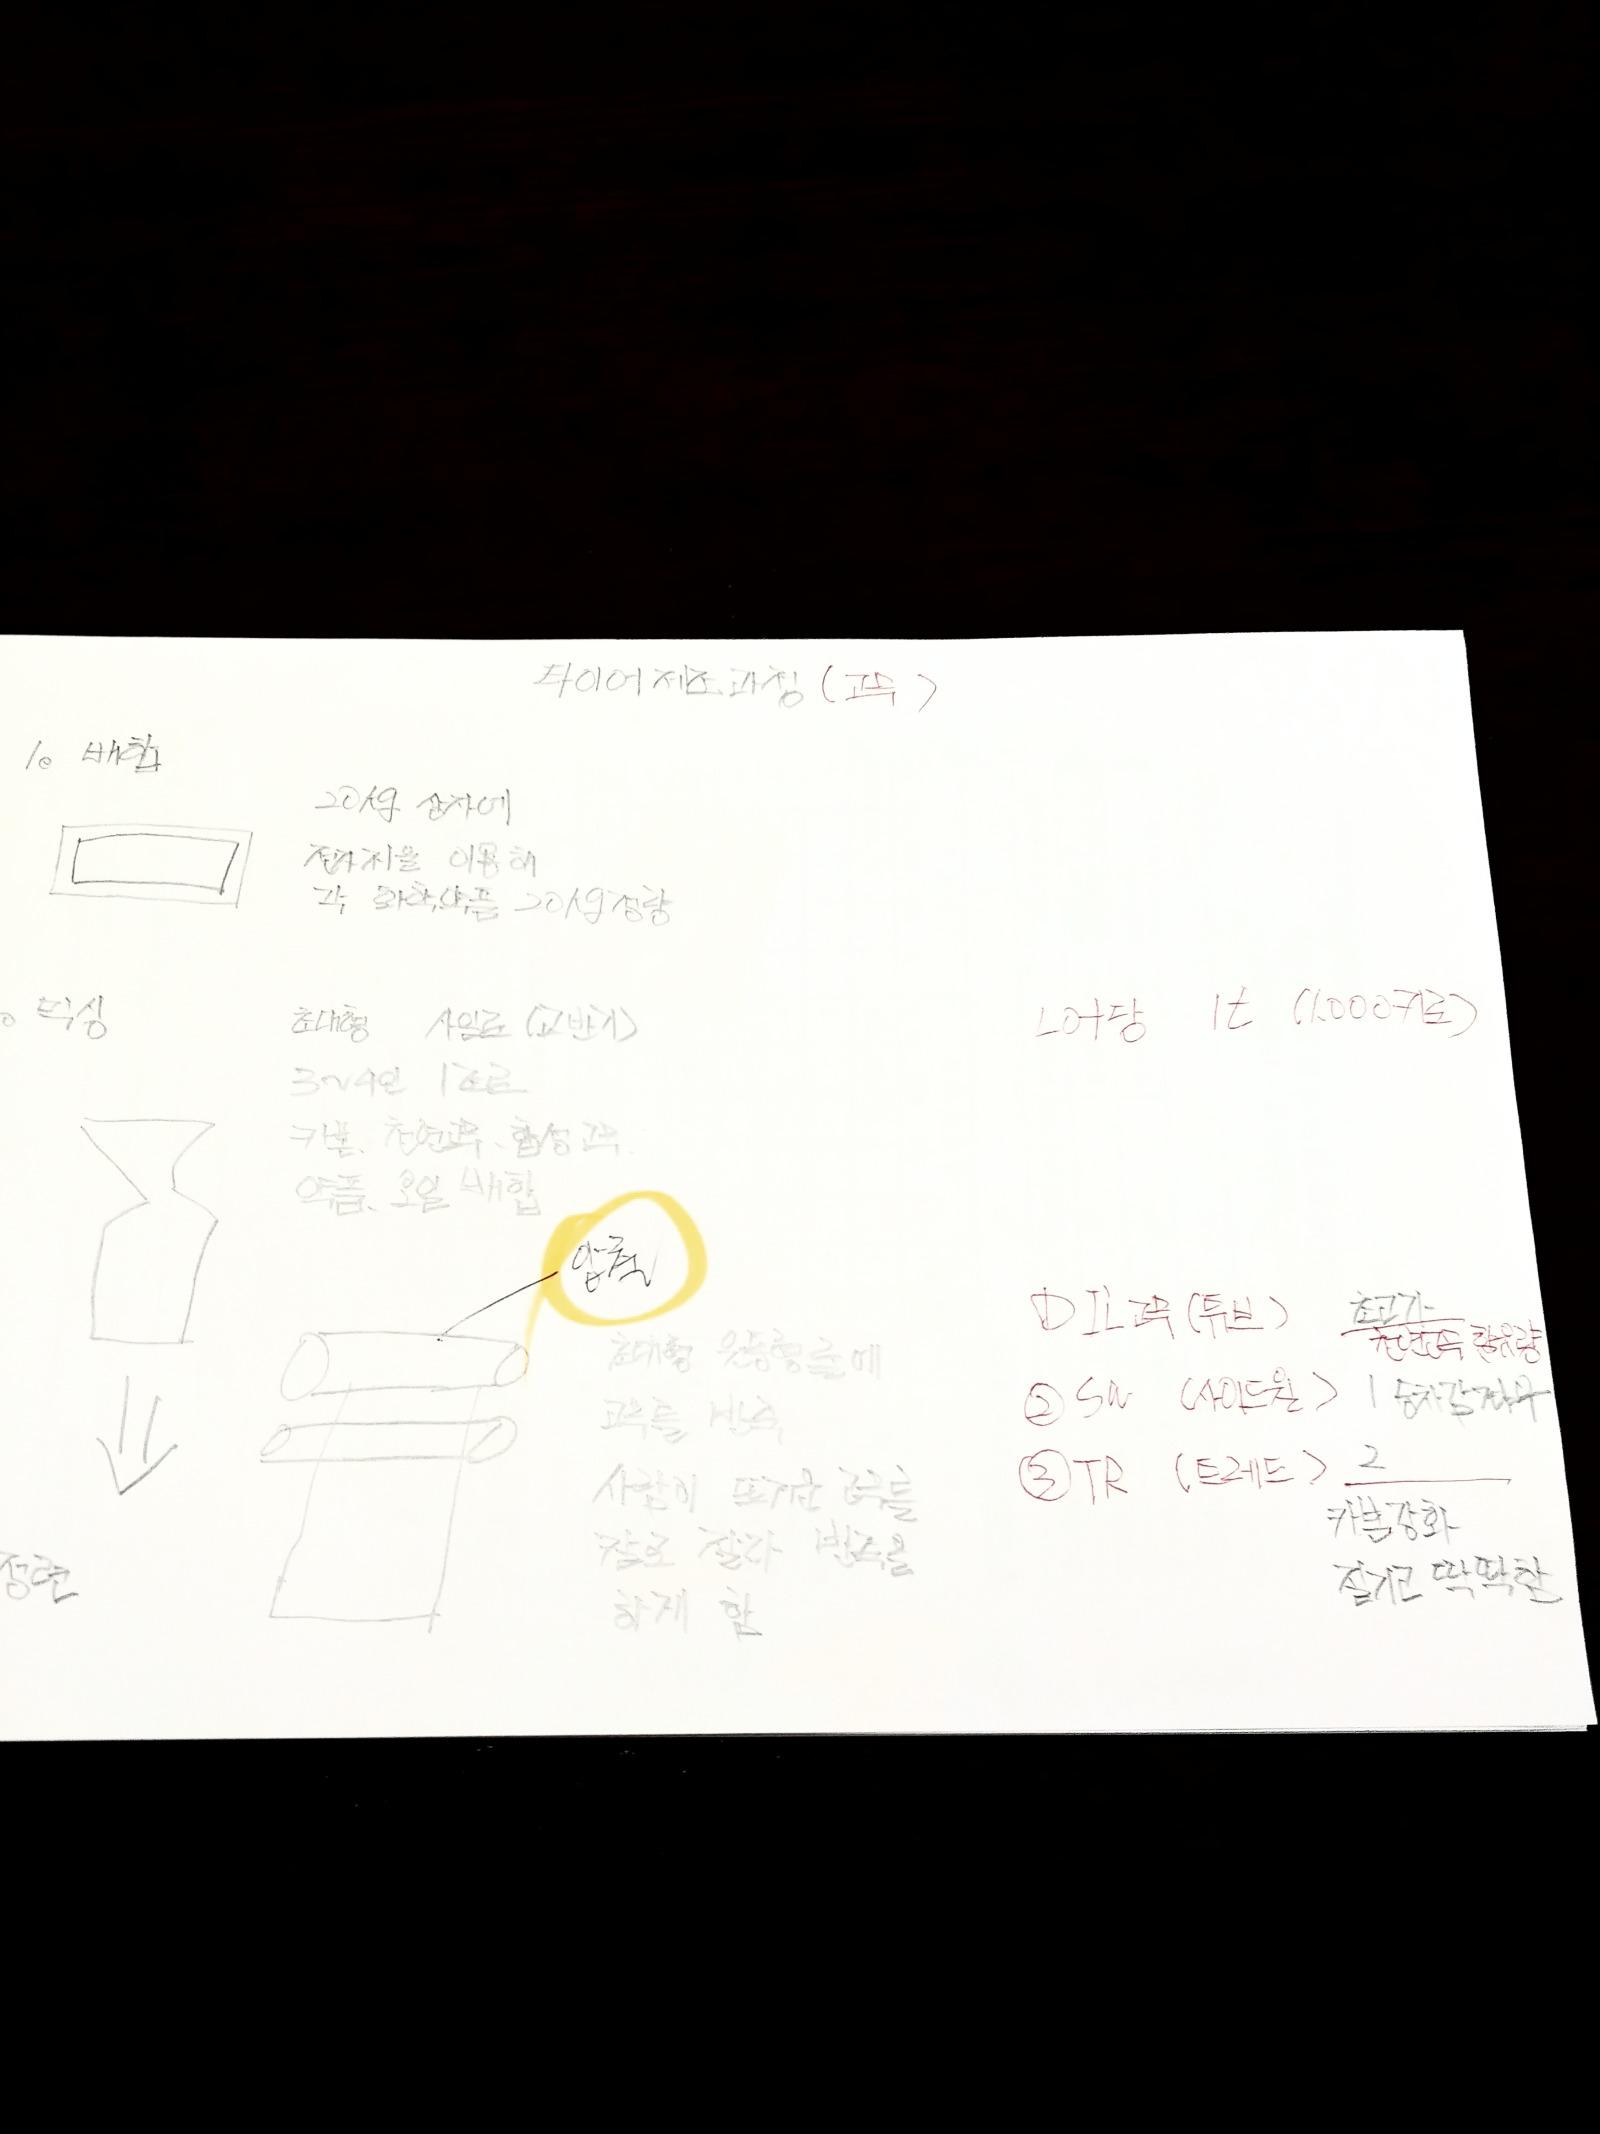 타이어 제조과정 (고무)
1. 배합
20kg 상자에
전자저울 이용해
각 화학약품 20kg 정량
믹싱
초대형 사일로 (교반기)
LOT당 1t (1,000키로)
3~4인 1조로
카본, 천연고무, 합성고무,
약품, 오일 배합
압력
① IL고무 (튜브) 초고가
천연고무 함유량
② SW (사이드월) 1 승차감 좌우
③ TR (트레드) 2
카본강화
질기고 딱딱함
정련
초대형 원통형롤에
고무를 반죽
사람이 뜨거운 고무를
칼로 잘라 반죽을
하게 함